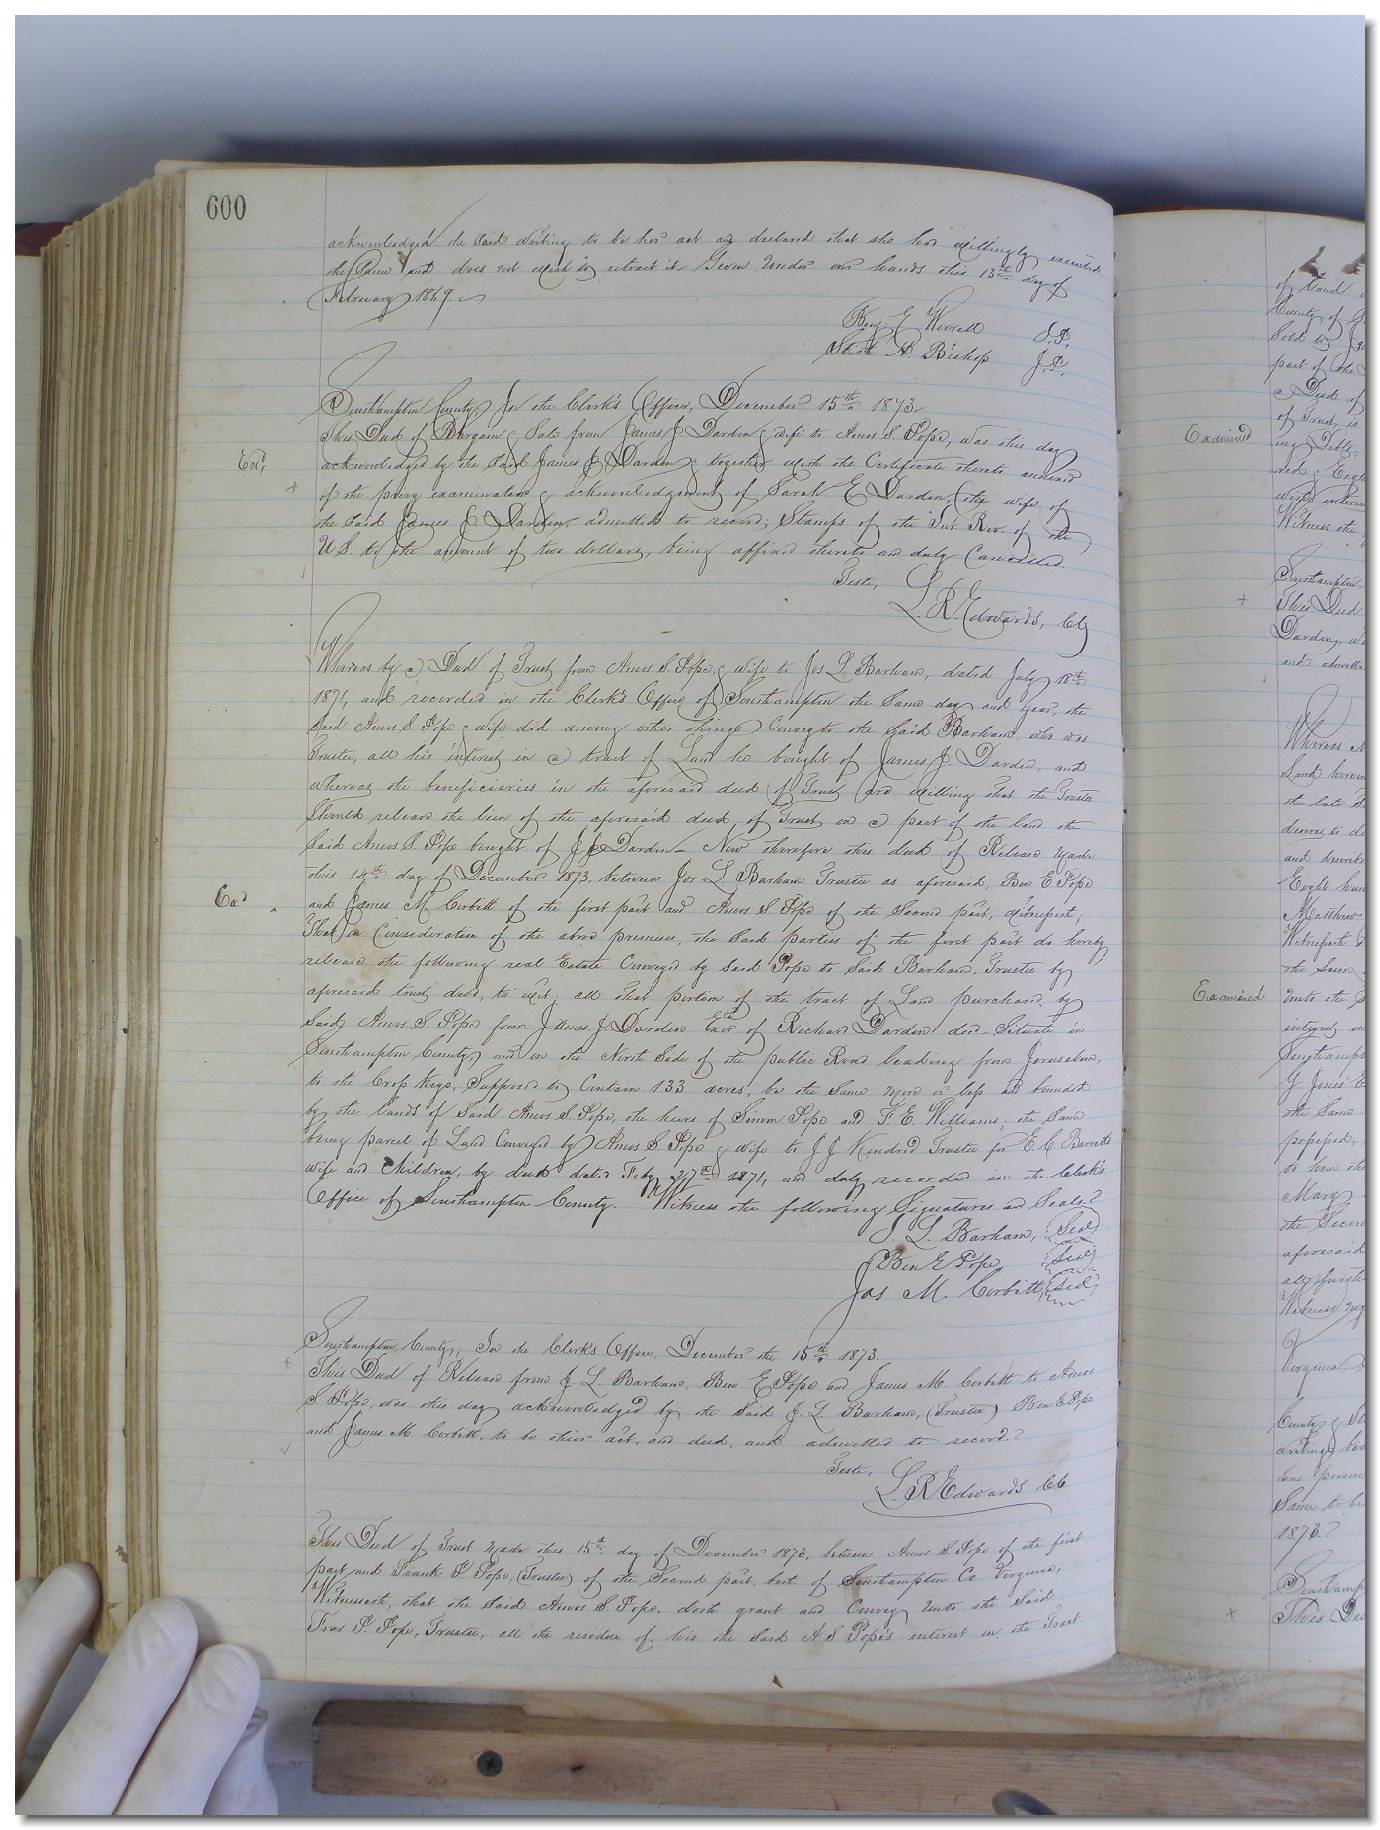 600
acknowledged the said writing to be her act and declared that she had willingly executed
the same and does not wish to retract it. Given under our hands this 13th day of
February 1869.
Benj E Worrell J.P.
A Bishop J.P.
Southampton County, In the Clerk's Office, December 15th 1873
This Deed of Bargain & Sale from James J Darden & wife to Amos S. Pope, was this day
Exd,
acknowledged by the said James J Darden & together with the Certificate thereto annexed
of the privy examination & acknowledgment of Sarah E Darden, (the wife of
the said James J Darden, admitted to record; Stamps of the Int Rev. of the
U.S. to the amount of two dollars, being affixed thereto and duly Cancelled.
Teste,
L. R. Edwards, Clk
Whereas by a Deed of Trust from Amos S. Pope, & wife to Jos L. Barham, dated July 18th
1871, and recorded in the Clerk's Office of Southampton the same day and year, the
said Amos S Pope & wife did among other things Convey to the said Barham, who was
Trustee, all his interest in a tract of Land he bought of James J. Darden, and
whereas the beneficiaries in the aforesaid deed of Trust are willing that the Trustee
should release the lien of the aforesaid deed of Trust on a part of the land the
said Amos S. Pope bought of J J Darden - Now therefore this deed of Release made
this 14th day of December 1873, between Jos L. Barham Trustee as aforesaid, Ben E. Pope
Exd
and James M Corbitt of the first part and Amos S. Pope of the second part, witnesseth;
That in Consideration of the above premises, the said parties of the first part do hereby
release the following real Estate Conveyed by said Pope to said Barham, Trustee by
aforesaid trust deed, to wit; all that portion of the tract of Land purchased by
said Amos S Pope from James J Darden Exor of Richard Darden decd Situate in
Southampton County, and on the North Side of the public Road leading from Jerusalem,
to the Cross Keys, Supposed to Contain 133 acres, be the same more or less and bounded
by the lands of said Amos S. Pope, the heirs of Simon Pope and F. E. Williams, the same
being parcel of Land Conveyed by Amos S. Pope & wife to J J Kindred Trustee for E. C. Barretts
wife and Children, by deed dated Feby 27th 1871, and duly recorded in the Clerk's
Office of Southampton County. Witness the following Signatures and Seals.
J. L. Barham, Seal
Ben E Pope, Seal
Jas M. Corbitt Seal
Southampton County, In the Clerk's Office, December the 15th 1873.
This Deed of Release from J. L. Barham, Ben E Pope and James M. Corbitt to Amos
S. Pope, was this day acknowledged by the said J. L. Barham, (Trustee) Ben E Pope
and James M. Corbitt, to be their act, and deed, and admitted to record.
Teste,
L. R Edwards Clk
This Deed of Trust made this 15th day of December 1873, between Amos S. Pope of the first
part and Frank P. Pope, (Trustee) of the second part, both of Southampton Co. Virginia,
Witnesseth, that the said Amos S. Pope, doth grant and Convey unto the said
Fras P. Pope, Trustee, all the residue of his the said A S Pope's interest in the Tract
of Land
County of
sold to
part of the
Deed of
Examined
of Trust, is
ing Debts,
and
Witness the
Southampton
This Deed
Darden,
and admitte
Whereas
Land
the late
desires to
and
Eight
Witnesseth
the sum
Examined
unto the
Southamp
the same
Mary
the Secon
aforesaid
Witness my
Virginia
County
Same to be
1873.
Southamp
This De